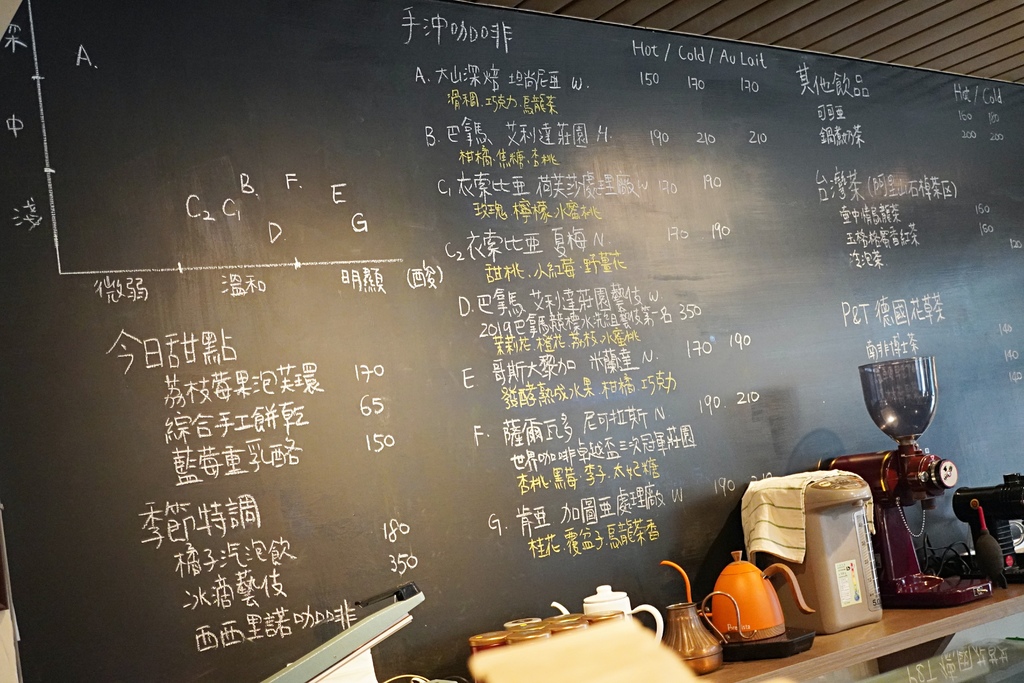 深
中
淺
A.
B.
F.
E
C2
C1
D.
G
微弱
溫和
明顯
(酸)
今日甜點
荔枝莓果泡芙環 170
綜合手工餅乾 65
藍莓重乳酪 150
季節特調
橘子汽泡飲 180
冰酒藝伎 350
西西里諾咖啡
手沖咖啡 Hot / Cold / Au Lait
A. 大山深焙 坦尚尼亞 W. 150 170 170
滑稠.巧克力.烏龍茶
B. 巴拿馬 艾利達莊園 N. 190 210 210
柑橘.焦糖.杏桃
C1 衣索比亞 荷芙莎處理廠 W 170 190
玫瑰.檸檬.水蜜桃
C2 衣索比亞 夏梅 N. 170 190
甜桃.小紅莓.野薑花
D. 巴拿馬 艾利達莊園藝伎 W.
2019巴拿馬競標水洗組藝伎第一名 350
茉莉花.橙花.荔枝.水蜜桃
E 哥斯大黎加 米蘭達 N. 170 190
發酵熟成水果.柑橘.巧克力
F. 薩爾瓦多 尼可拉斯 N 190 210
世界咖啡卓越盃三次冠軍莊園
杏桃.黑莓.李子.太妃糖
G. 肯亞 加圖亞處理廠 W 190 210
桂花.覆盆子.烏龍茶香
其他飲品 Hot / Cold
可可亞 160 180
鍋煮奶茶 200 200
台灣茶 (阿里山石棹茶區)
壺中情烏龍茶 150
蜜香紅茶 150
冷泡茶 120
P&T 德國花草茶
南非博士茶 140
140
140